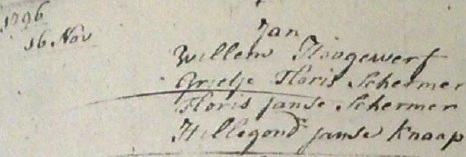 1796
16 Nov
Jan
Willem Hoogewerf
Grietje Floris Schermer
Floris Janse Schermer
Hillegond Janse Knaap